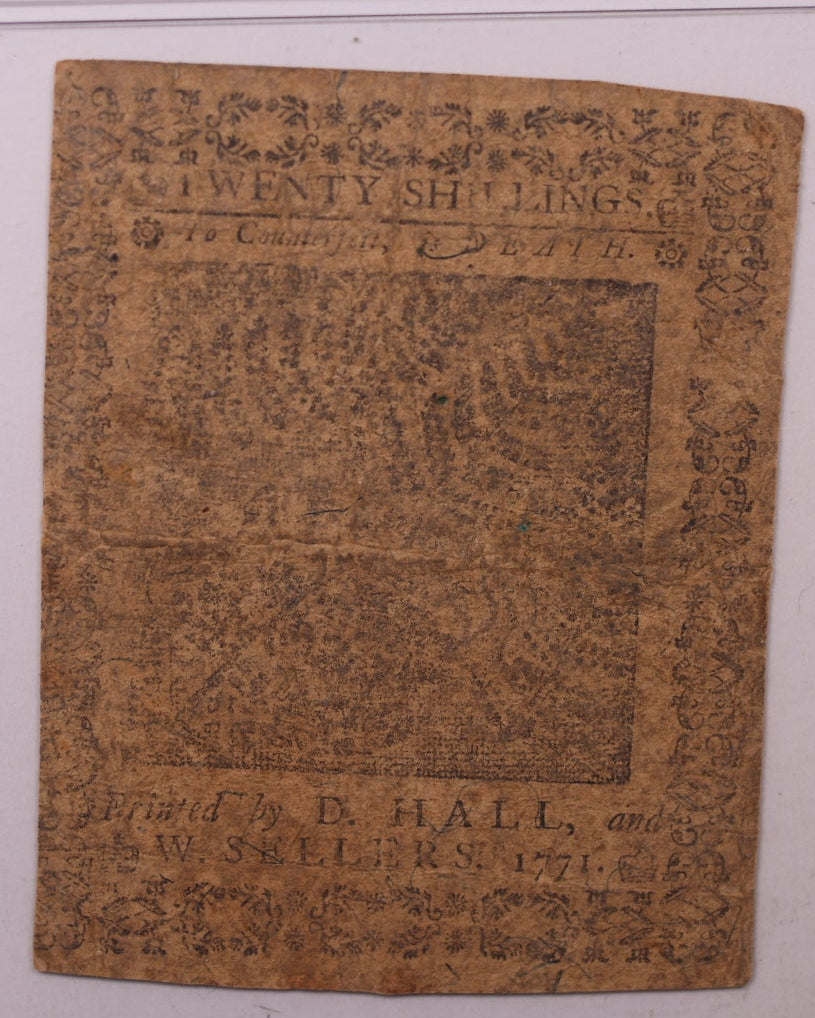 TWENTY SHILLINGS.
To Counterfeit, is DEATH.
Printed by D. HALL, and
W. SELLERS. 1771.